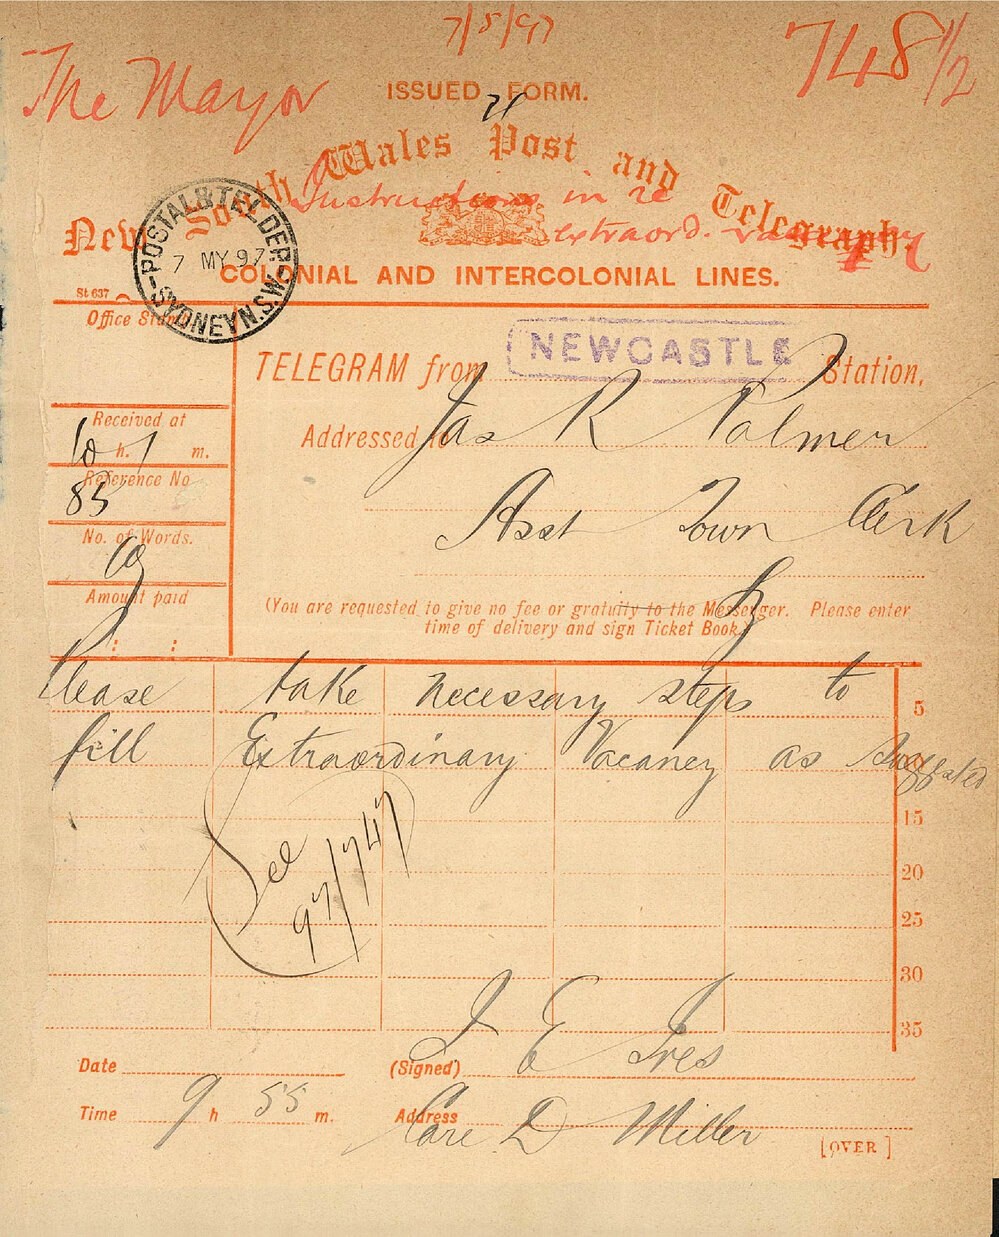 7/5/97
The Mayor
748 1/2
ISSUED FORM.
New South Wales Post and Telegraph.
Instructions in re
extraord. vacancy
POSTAL & TEL DEP.
7 MY 97
SYDNEY N.S.W
COLONIAL AND INTERCOLONIAL LINES.
St 637
Office Stamp
TELEGRAM from NEWCASTLE Station,
Addressed to Jas R Palmer
Asst Town Clerk
Received at
10 h. 1 m.
Reference No
83
No. of Words.
Amount paid
: :
(You are requested to give no fee or gratuity to the Messenger. Please enter
time of delivery and sign Ticket Book.)
Please take necessary steps to 5
fill Extraordinary Vacancy as suggested
15
20
25
30
35
See
97/747
Date
(Signed) I E Ives
Time 9 h 55 m.
Address Care D Miller
[OVER]